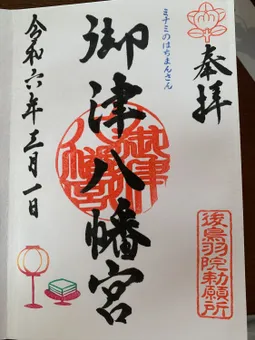 奉拝
ミナミのはちまんさん
御津八幡宮
御津八幡宮
令和六年三月一日
後鳥羽院勅願所